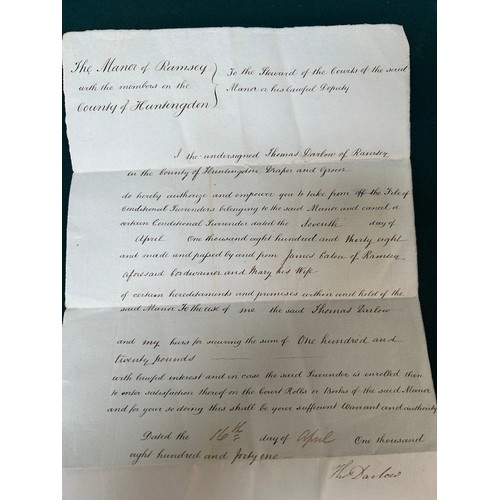 The Manor of Ramsey
with the members in the
County of Huntingdon
To the Steward of the Courts of the said
Manor or his lawful Deputy
I the undersigned Thomas Darlow of Ramsey
in the County of Huntingdon Draper and Grocer
do hereby authorize and empower you to take from off the File of
Conditional Surrenders belonging to the said Manor and cancel a
certain Conditional Surrender dated the Seventh day of
April One thousand eight hundred and thirty eight
and made and passed by and from James Eaton of Ramsey
aforesaid Cordwainer and Mary his Wife
of certain hereditaments and premises within and held of the
said Manor To the use of me the said Thomas Darlow
and my heirs for securing the sum of One hundred and
twenty pounds
with lawful interest and in case the said Surrender is enrolled then
to enter satisfaction thereof on the Court Rolls or Books of the said Manor
and for your so doing this shall be your sufficient Warrant and authority
Dated the 16th day of April One thousand
eight hundred and forty one
Thos Darlow